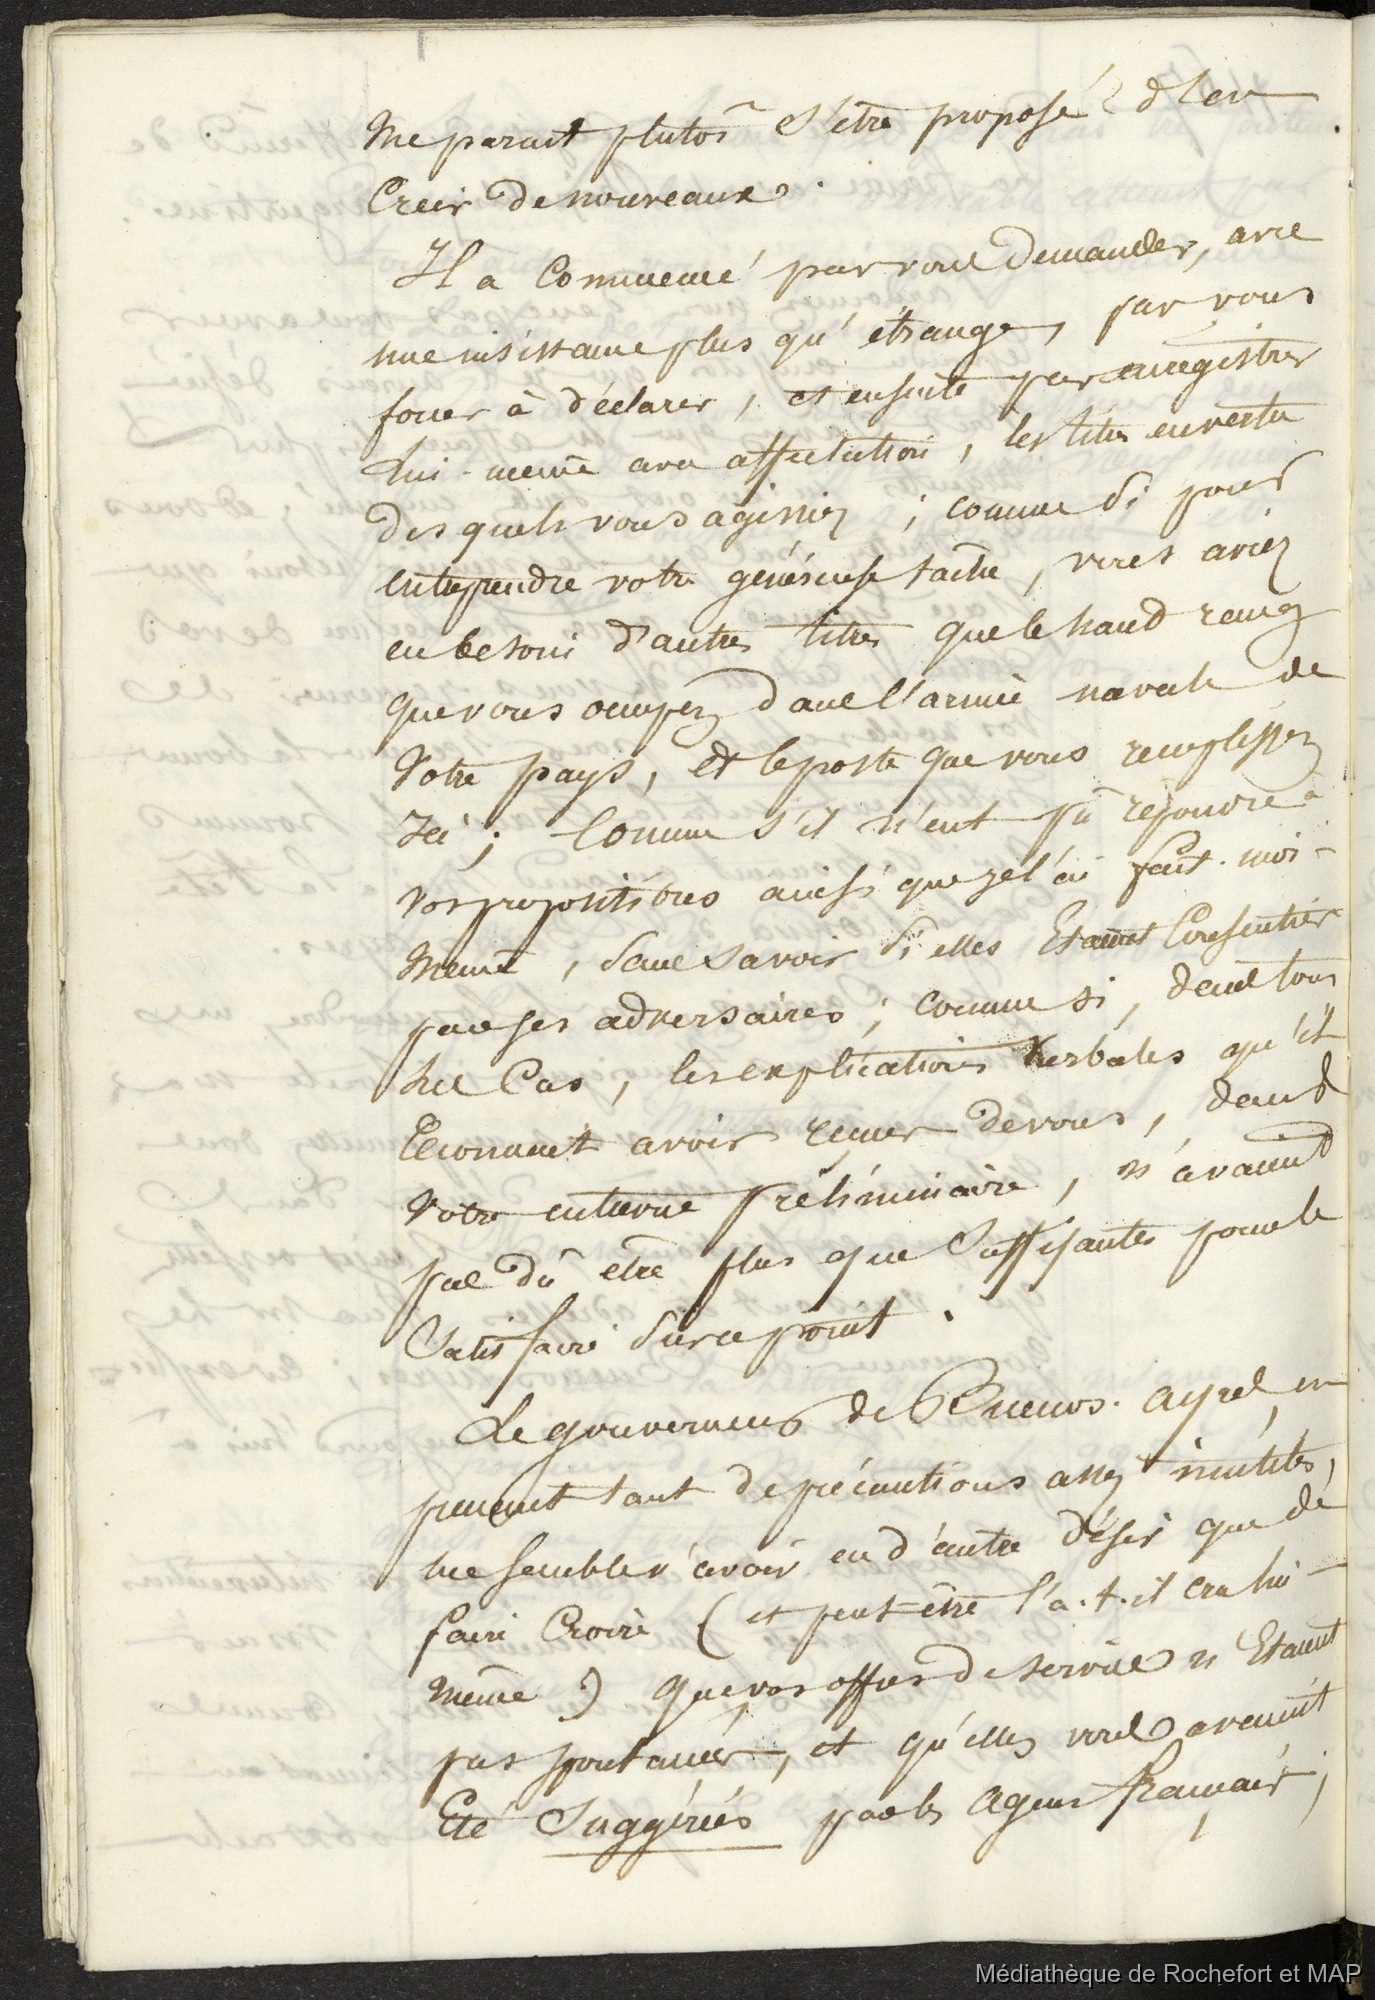 me parait plutot s'etre proposé d'en
Créér de nouveaux.
Il a Commencé par vous demander, avec
une insistance plus qu'étrange, par vous
forcer à déclarer, et ensuite par enregistrer
lui-même avec affectation, les titres en vertu
des quels vous agissiez ; comme si pour
entreprendre votre généreuse tache, vous aviez
eu besoin d'autres titres que le haut rang
que vous occupez dans l'armée navale de
Votre pays, et le poste que vous remplissez
Ici ; Comme s'il n'eut pû répondre à
vos propositions ainsi que je l'ai fait moi-
Même, sans savoir si elles Etaient Consenties
par ses adversaires ; comme si, dans tous
les Cas, les explications Verbales qu'il
reconnait avoir reçues de vous, dans
Votre entrevue préliminaire, n'avaient
pas dû être plus que suffisantes pour le
Satisfaire sur ce point.
Le gouverneur de Buenos-ayres, en
prenant tant de précautions assez inutiles,
me semble n'avoir eu d'autre désir que de
faire Croire (et peut-être l'a-t-il cru lui-
même) que vos offres de service n'Etaient
pas spontanées, et qu'elles vous avaient
Eté Suggérées par les agens français ;
Médiathèque de Rochefort et MAP